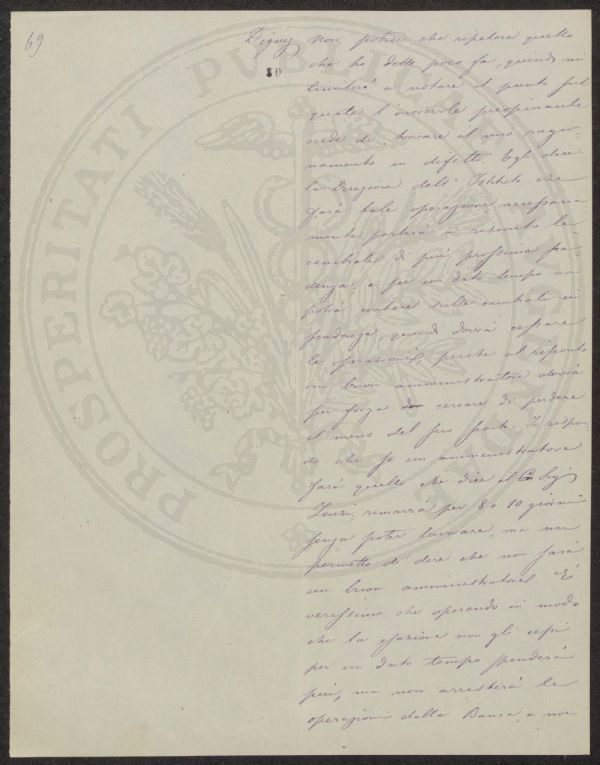 69
Non potrei che repetere quello
80
che ho detto poco fa, quindi mi
limiterò a notare il punto sul
quale l'onorevole preopinante
crede di trovare il mio ragio-
namento in difetto. Egli dice
la Direzione dell' Istituto che
farà tale operazione necessaria
mente porterà a risconto le
cambiali di più prossima sca-
denza, e per un dato tempo non
potrà contare sulle cambiali in
scadenza, quindi dovrà cessare
le operazioni, perchè al risconto
un buon amministratore dovrà
per forza cercare di perdere
il meno del suo sconto. Io rispon
do che se un amministratore
farà quello che dice il Sig.
rimarrà per 8 o 10 giorni
senza poter lavorare, ma mi
permetto di dire che non sarà
un buon amministratore. È
verissimo che operando in modo
che la esazione non gli cessi
per un dato tempo spenderà
più, ma non arresterà le
operazioni della Banca, e non
PROSPERITATI PUBLICAE